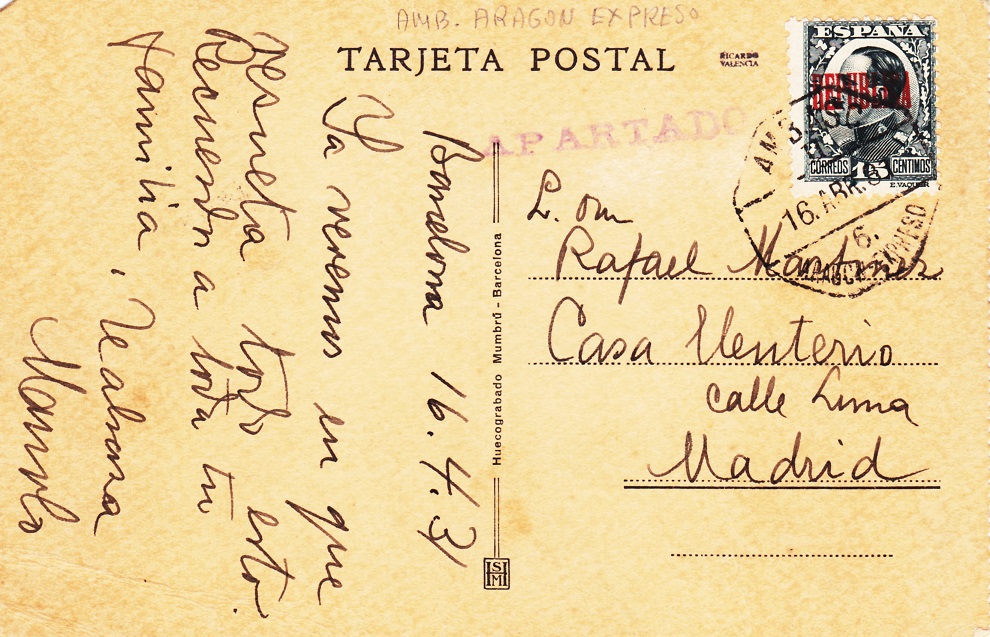 AMB. ARAGON EXPRESO
TARJETA POSTAL
RICARDO
VALENCIA
ESPAÑA
REPUBLICA
CORREOS 15 CENTIMOS
E. VAQUER
APARTADO
16. ABR. 3
6.
EXPRESO
Barcelona 16. 4. 31
Ya veremos en que
resueta todo esto.
Recuerdo a toda tu
familia,
Manolo
Huecograbado Mumbrú - Barcelona
Rafael Martinez
Casa
calle Lima
Madrid